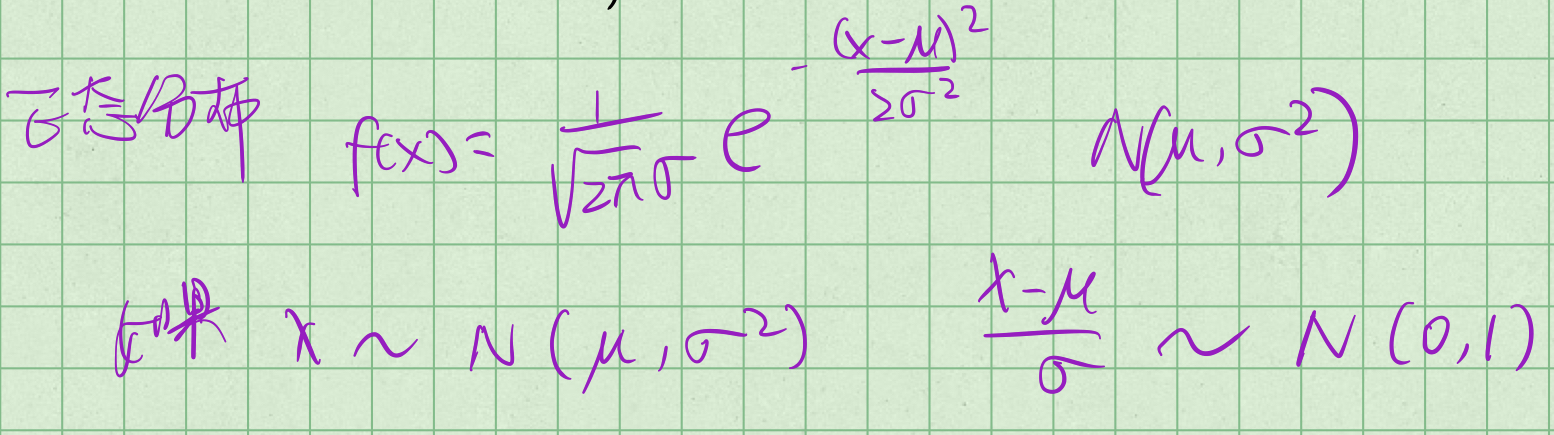 正态分布 f(x) = \frac{1}{\sqrt{2π}σ} e^{-\frac{(x-μ)^2}{2σ^2}} N(μ, σ^2)
X ~ N(μ, σ^2) \frac{X-μ}{σ} ~ N(0,1)